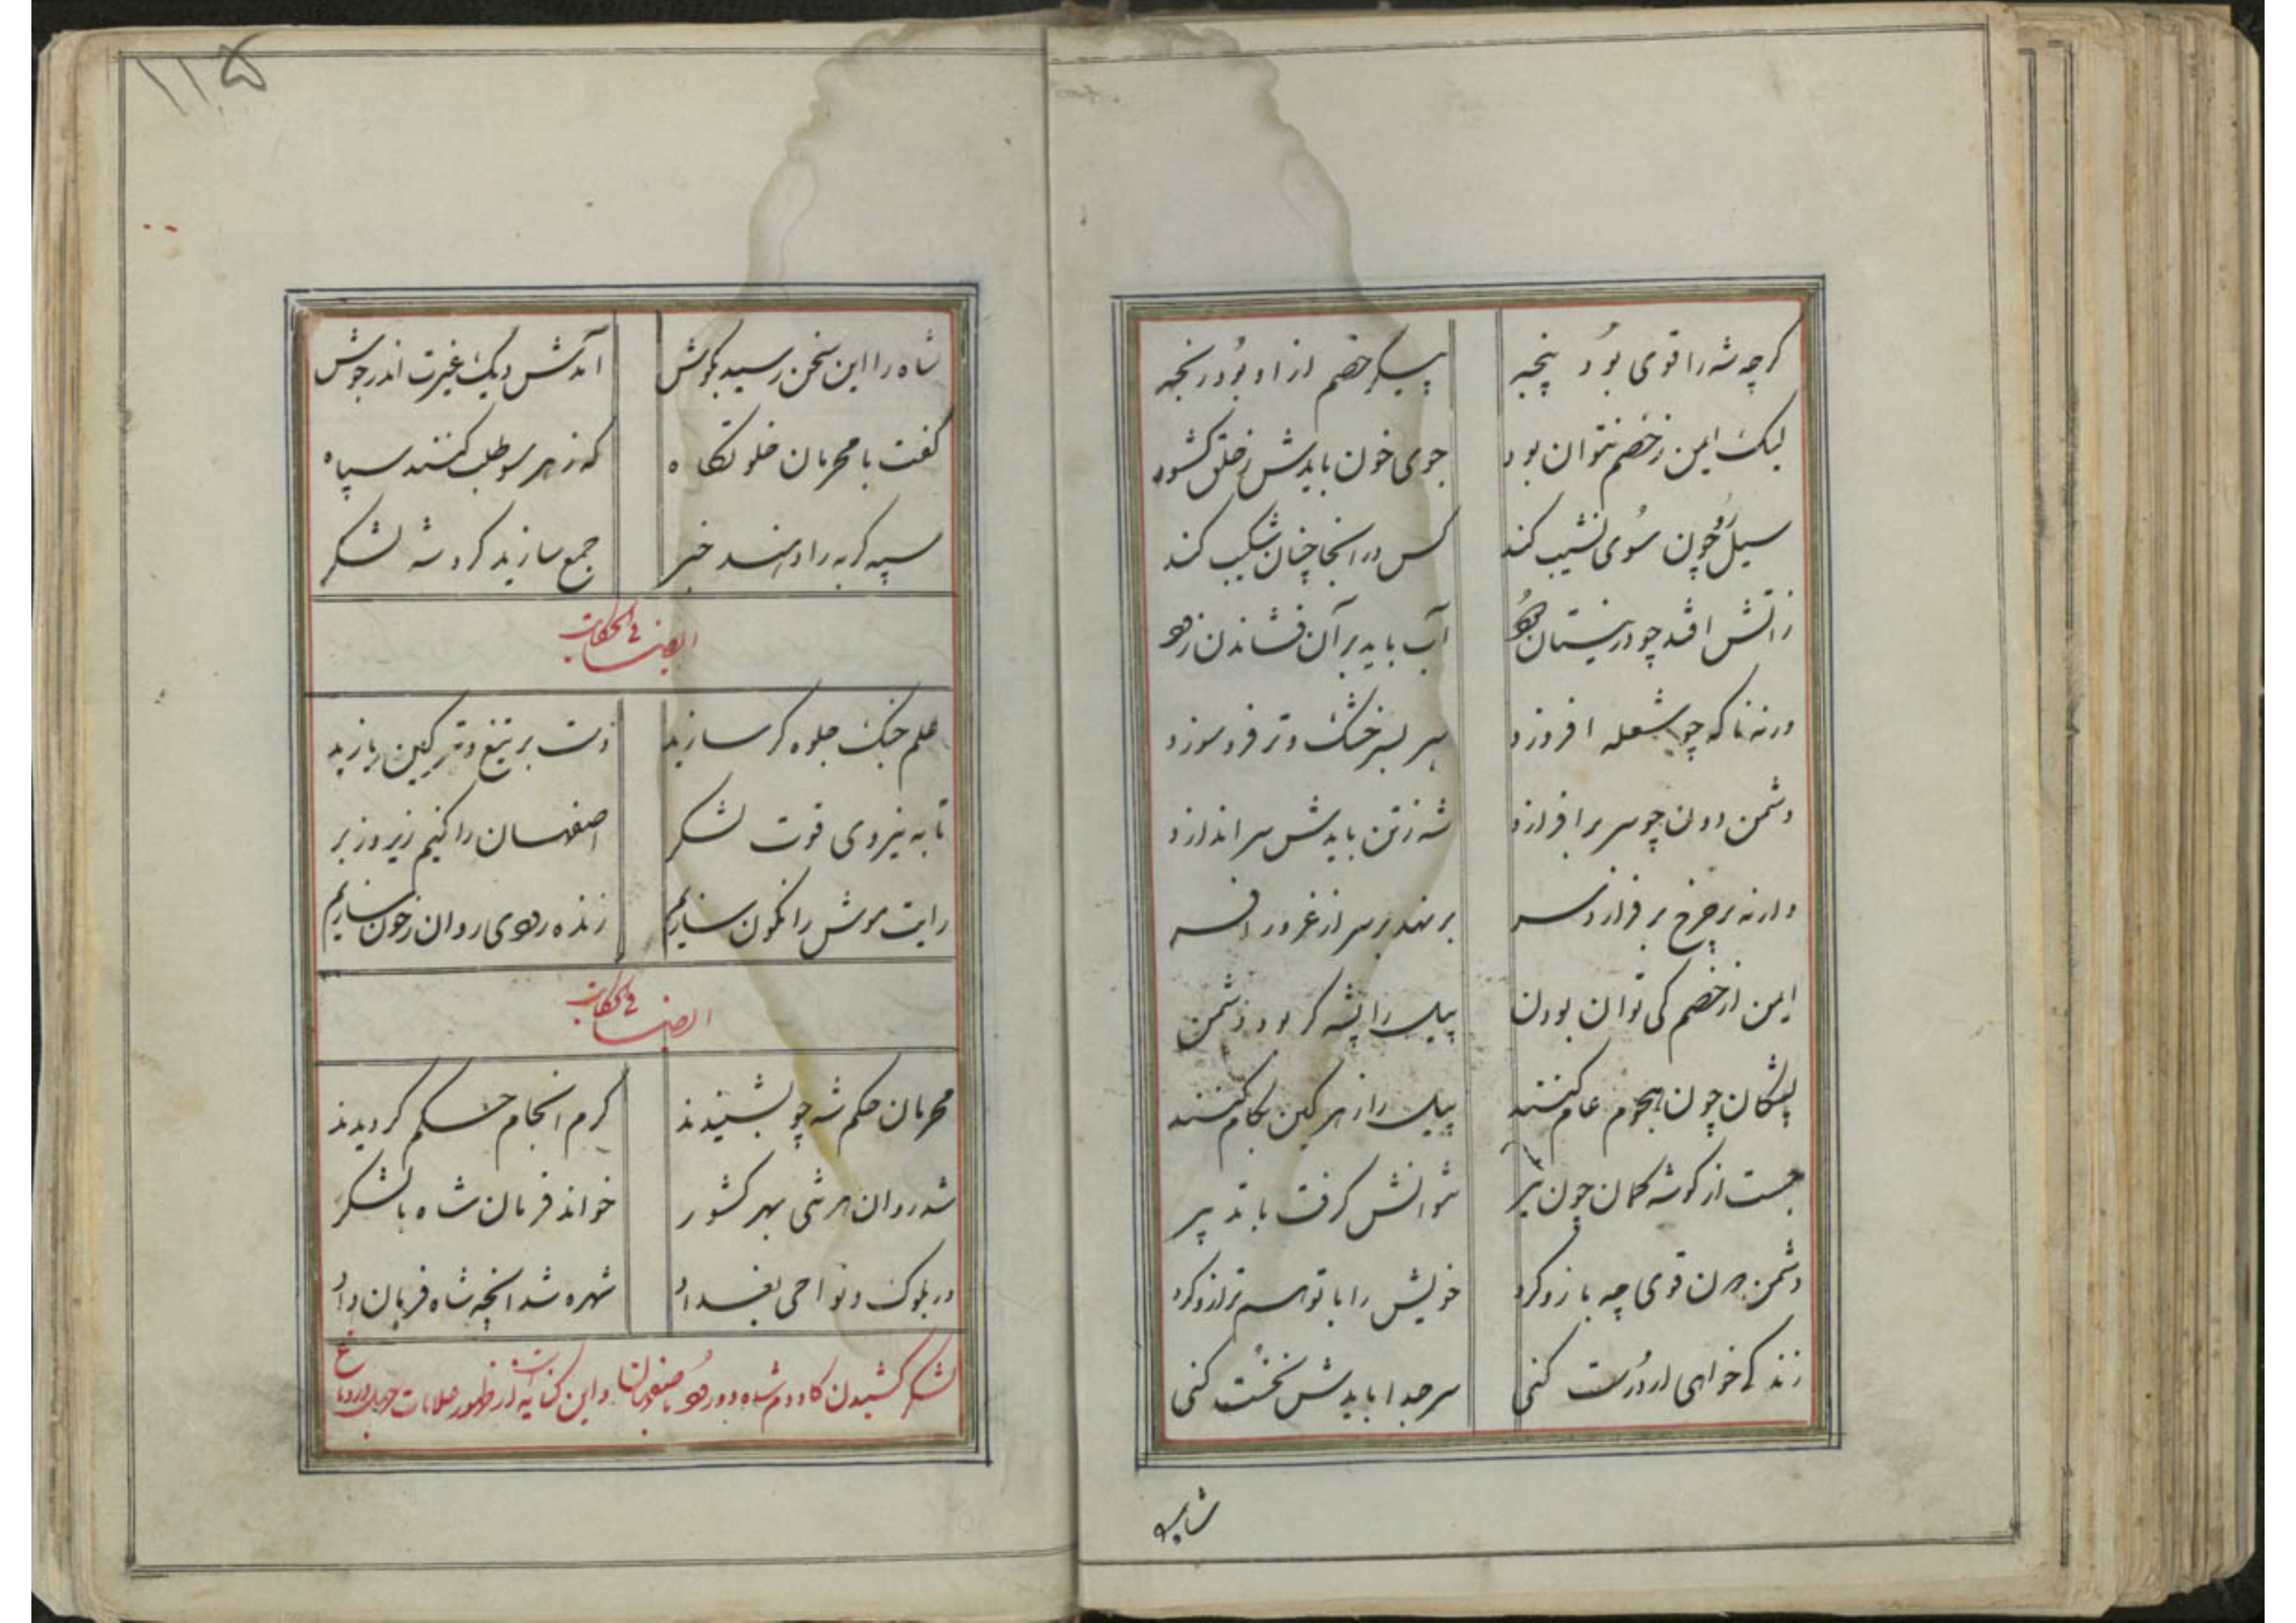 کرچه شه را قوی بود پنجه پیکر خصم از او بود رنجه
لیک ایمن ز خصم نتوان بود جوی خون بایدش ز خلق کشود
سیل رو چون سوی نشیب کند کس در انجا چنان شکیب کند
زاتش افتد چو در نیستان آب باید بر آن فشاندن زود
ورنه ناکه چو شعله افروزد سر بسر خشک و تر فرو سوزد
دشمن دون چو سر برافرازد شه ز تن بایدش سر اندازد
وارنه بر چرخ بر فرازد سر بر نهد بر سر از غرور افسر
ایمن از خصم کی توان بودن پیل را پشه کر بود دشمن
پشکان چون هجوم عام کنند پیل را زهر کین بکام کنند
جست از کوشه کمان چون تیر نتوانش کرفت با تدبیر
دشمن دون قوی چه بازو کرد خویش را با تو هم ترازو کرد
زندکی خواهی ار درست کنی سر جدا بایدش نخست کنی
شاه
۱۱۵
شاه را این سخن رسید بکوش آمدش دیک غیرت اندر جوش
کفت با محرمان خلوتکاه که ز هر سو طلب کنند سپاه
سپه کربه را دهند خبر جمع سازید کرد شه لشکر
ایضا فی الحکایت
علم جنک جلوه کر سازید دست بر تیغ و تیر کین یازید
تا به نیروی قوت لشکر اصفهان را کنیم زیر و زبر
رایت موش را نکون سازیم زنده رودی روان ز خون سازیم
ایضا فی الحکایت
محرمان حکم شه چو بشنیدند کرم انجام حکم کردیدند
شد روان هر شهی بهر کشور خواند فرمان شاه با لشکر
در بلوک و نواحی بغداد شهره شد انچه شاه فرمان داد
لشکر کشیدن کاودم شاه و ورود باصفهان و این کنایه از ظهور علامات